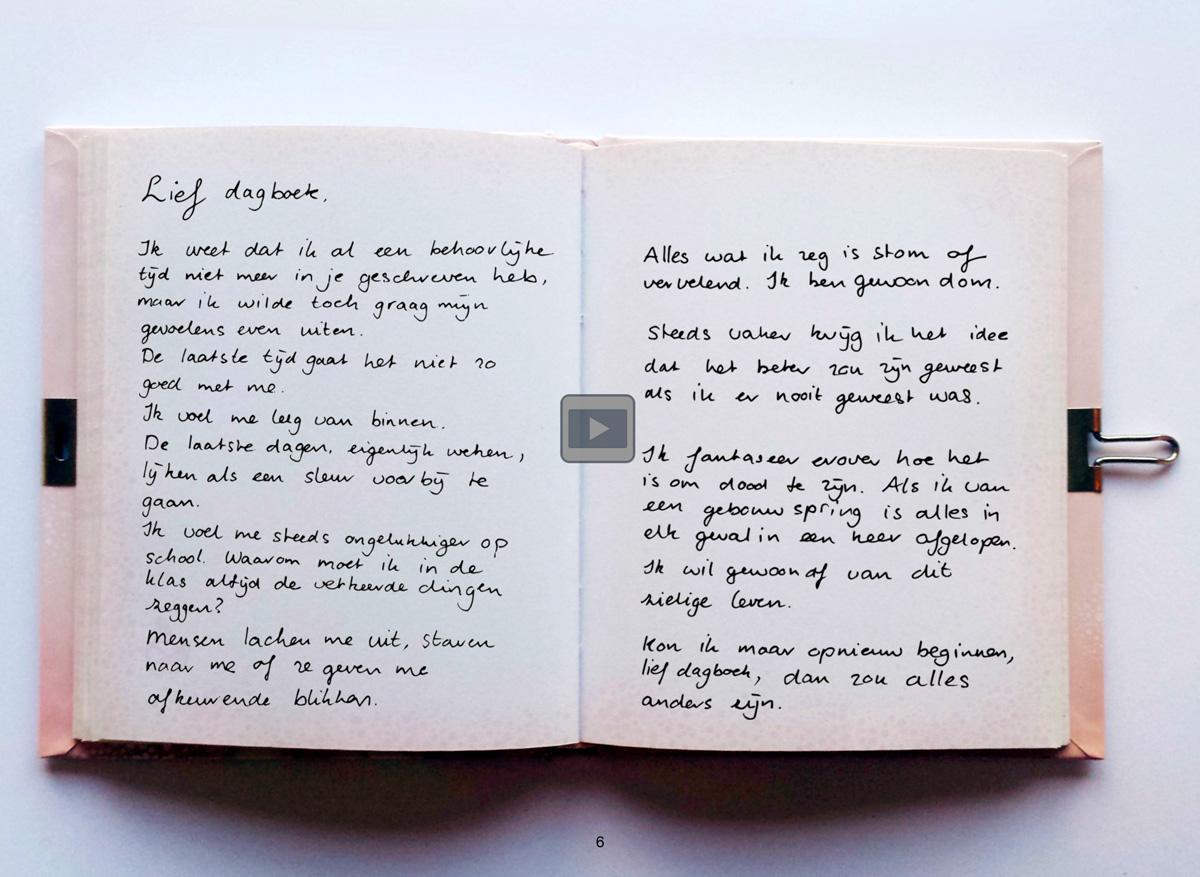 Lief dagboek,
Ik weet dat ik al een behoorlijke
tijd niet meer in je geschreven heb,
maar ik wilde toch graag mijn
gevoelens even uiten.
De laatste tijd gaat het niet zo
goed met me.
Ik voel me leeg van binnen.
De laatste dagen, eigenlijk weken,
lijken als een sleur voorbij te
gaan.
Ik voel me steeds ongelukkiger op
school. Waarom moet ik in de
klas altijd de verkeerde dingen
zeggen?
Mensen lachen me uit, staren
naar me of ze geven me
afkeurende blikken.
Alles wat ik zeg is stom of
vervelend. Ik ben gewoon dom.
Steeds vaker krijg ik het idee
dat het beter zou zijn geweest
als ik er nooit geweest was.
Ik fantaseer erover hoe het
is om dood te zijn. Als ik van
een gebouw spring is alles in
elk geval in een keer afgelopen.
Ik wil gewoon af van dit
zielige leven.
Kon ik maar opnieuw beginnen,
lief dagboek, dan zou alles
anders zijn.
6